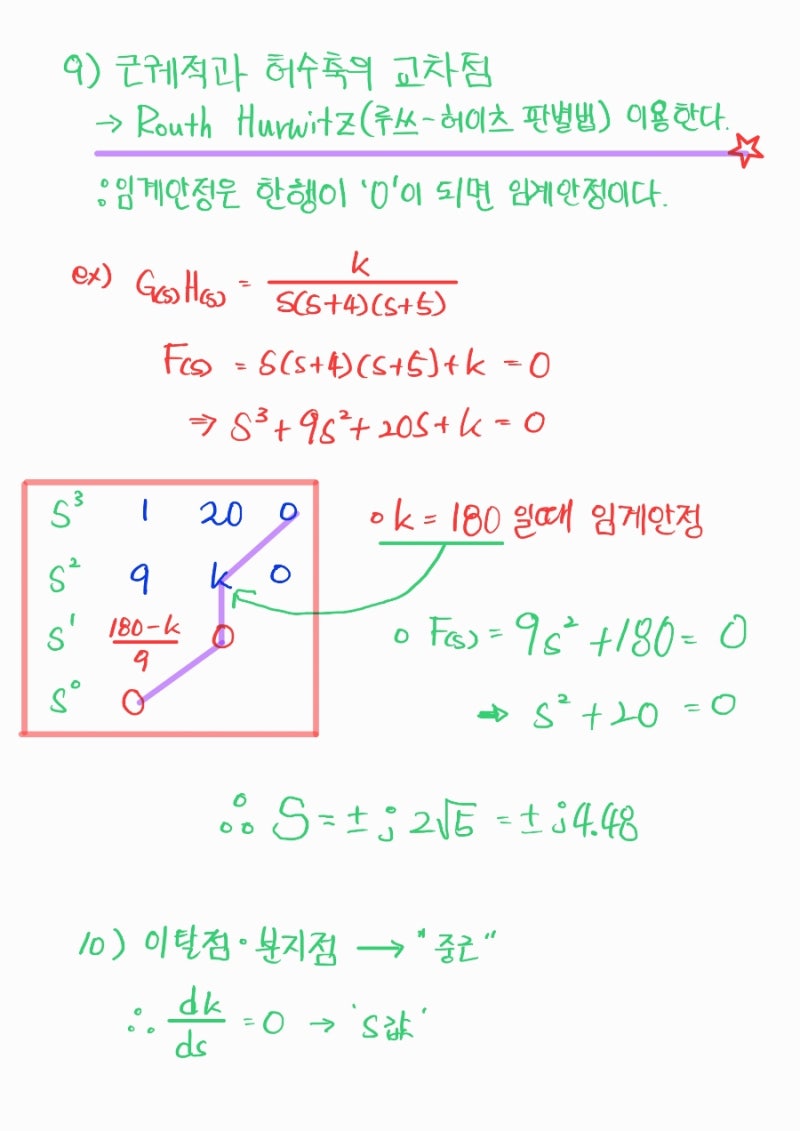 9) 근궤적과 허수축의 교차점
→ Routh Hurwitz(루쓰-허이츠 판별법) 이용한다.
:임계안정은 한행이 '0'이 되면 임계안정이다.
ex) G(s)H(s) = k / s(s+4)(s+5)
F(s) = s(s+4)(s+5)+k = 0
⇒ s³+9s²+20s+k = 0
s³ 1 20 0
s² 9 k 0
s¹ (180-k)/9 0
s⁰ 0
∘k = 180 일때 임계안정
∘ F(s) = 9s²+180 = 0
→ s²+20 = 0
∴ S = ±j2√5 = ±j4.48
10) 이탈점·분지점 → "중근"
∴ dk/ds = 0 → 's값'